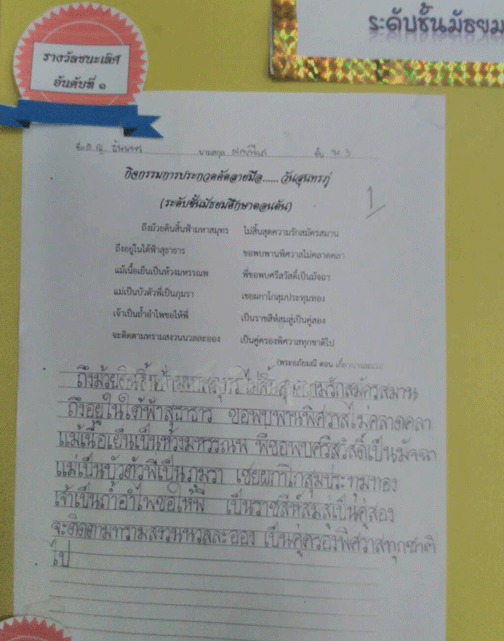 ระดับชั้นมัธยม
รางวัลชนะเลิศ
อันดับที่ ๑
ชื่อ ด.ญ. นามสกุล ชั้น ม.3
กิจกรรมการประกวดคัดลายมือ......วันสุนทรภู่
(ระดับชั้นมัธยมศึกษาตอนต้น)
1
ถึงม้วยดินสิ้นฟ้ามหาสมุทร ไม่สิ้นสุดความรักสมัครสมาน
ถึงอยู่ในใต้ฟ้าสุธาธาร ขอพบพานพิศวาสไม่คลาดคลา
แม้เนื้อเย็นเป็นห้วงมหรรณพ พี่ขอพบศรีสวัสดิ์เป็นมัจฉา
แม่เป็นบัวตัวพี่เป็นภุมรา เชยผกาโกสุมประทุมทอง
เจ้าเป็นถ้ำอำไพขอให้พี่ เป็นราชสีห์สมสู่เป็นคู่สอง
จะติดตามทรามสงวนนวลละออง เป็นคู่ครองพิศวาสทุกชาติไป
(พระอภัยมณี ตอน
ถึงม้วยดินสิ้นฟ้ามหาสมุทร ไม่สิ้นสุดความรักสมัครสมาน
ถึงอยู่ในใต้ฟ้าสุธาธาร ขอพบพานพิศวาสไม่คลาดคลา
แม้เนื้อเย็นเป็นห้วงมหรรณพ พี่ขอพบศรีสวัสดิ์เป็นมัจฉา
แม่เป็นบัวตัวพี่เป็นภุมรา เชยผกาโกสุมประทุมทอง
เจ้าเป็นถ้ำอำไพขอให้พี่ เป็นราชสีห์สมสู่เป็นคู่สอง
จะติดตามทรามสงวนนวลละออง เป็นคู่ครองพิศวาสทุกชาติ
ไป